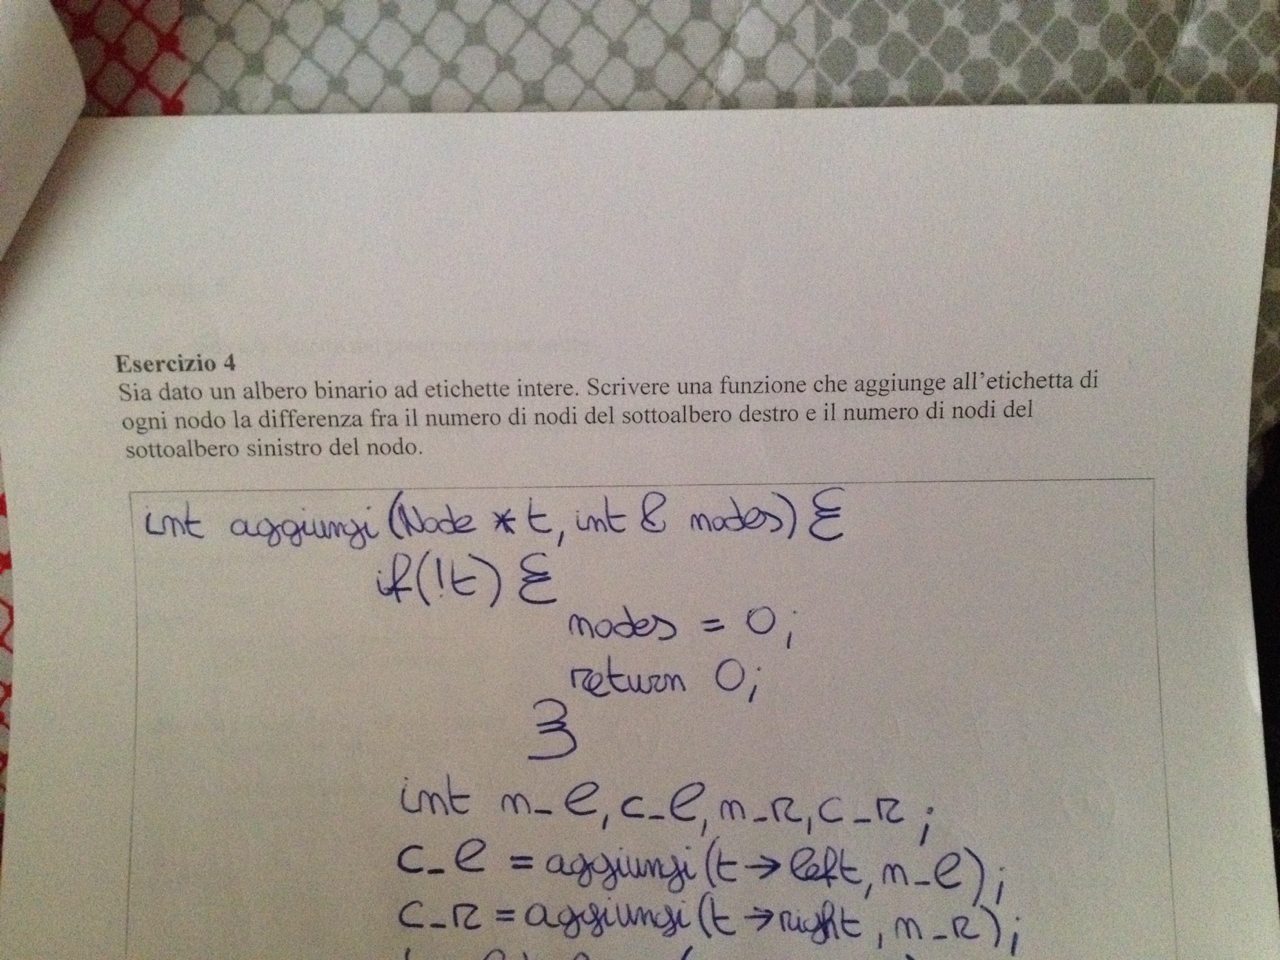 Esercizio 4
Sia dato un albero binario ad etichette intere. Scrivere una funzione che aggiunge all'etichetta di
ogni nodo la differenza fra il numero di nodi del sottoalbero destro e il numero di nodi del
sottoalbero sinistro del nodo.
int aggiungi(Node *t, int & nodes) {
if(!t) {
nodes = 0;
return 0;
}
int n_l, c_l, n_r, c_r;
c_l = aggiungi(t->left, n_l);
c_r = aggiungi(t->right, n_r);